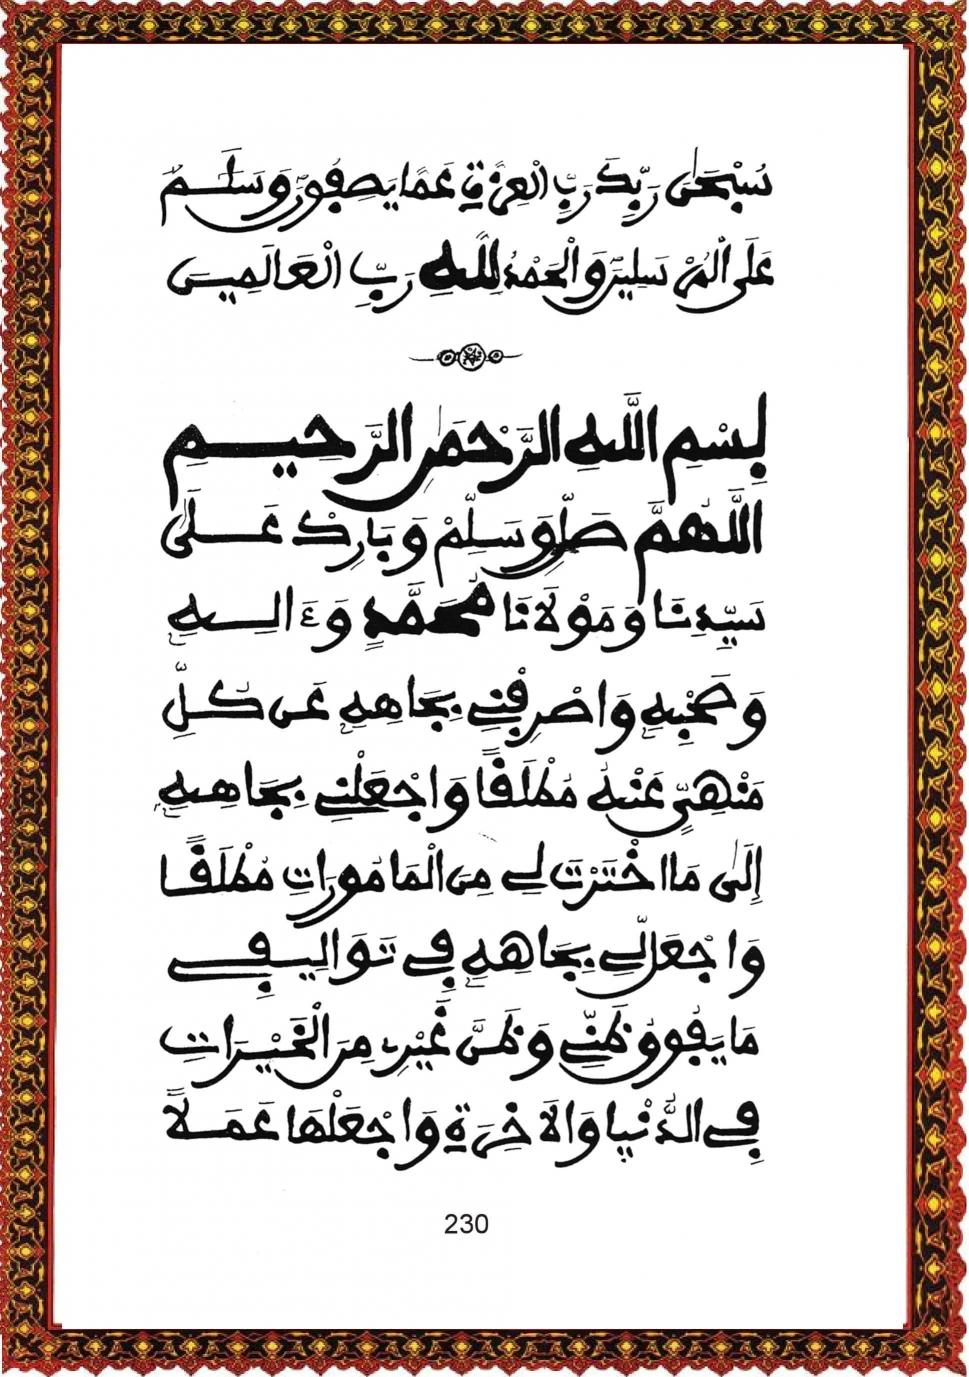 سُبْحَٰنَ رَبِّكَ رَبِّ الْعِزَّةِ عَمَّا يَصِفُونَ وَسَلَٰمٌ
عَلَى الْمُرْسَلِينَ وَالْحَمْدُ لِلَّهِ رَبِّ الْعَالَمِينَ
بِسْمِ اللَّهِ الرَّحْمَٰنِ الرَّحِيمِ
اللَّهُمَّ صَلِّ وَسَلِّمْ وَبَارِكْ عَلَىٰ
سَيِّدِنَا وَمَوْلَانَا مُحَمَّدٍ وَءَالِهِ
وَصَحْبِهِ وَاصْرِفْنِي بِجَاهِهِ عَن كُلِّ
مَنْهِيٍّ عَنْهُ مُطْلَقًا وَاجْعَلْنِي بِجَاهِهِ
إِلَىٰ مَا اخْتَرْتَ لِي مِنَ الْمَامُورَاتِ مُطْلَقًا
وَاجْعَل لِّي بِجَاهِهِ فِي تَوَالِيفِي
مَا يَفُوقُ ظَنِّي وَظَنَّ غَيْرِي مِنَ الْخَيْرَاتِ
فِي الدُّنْيَا وَالْآخِرَةِ وَاجْعَلْهَا عَمَلًا
230